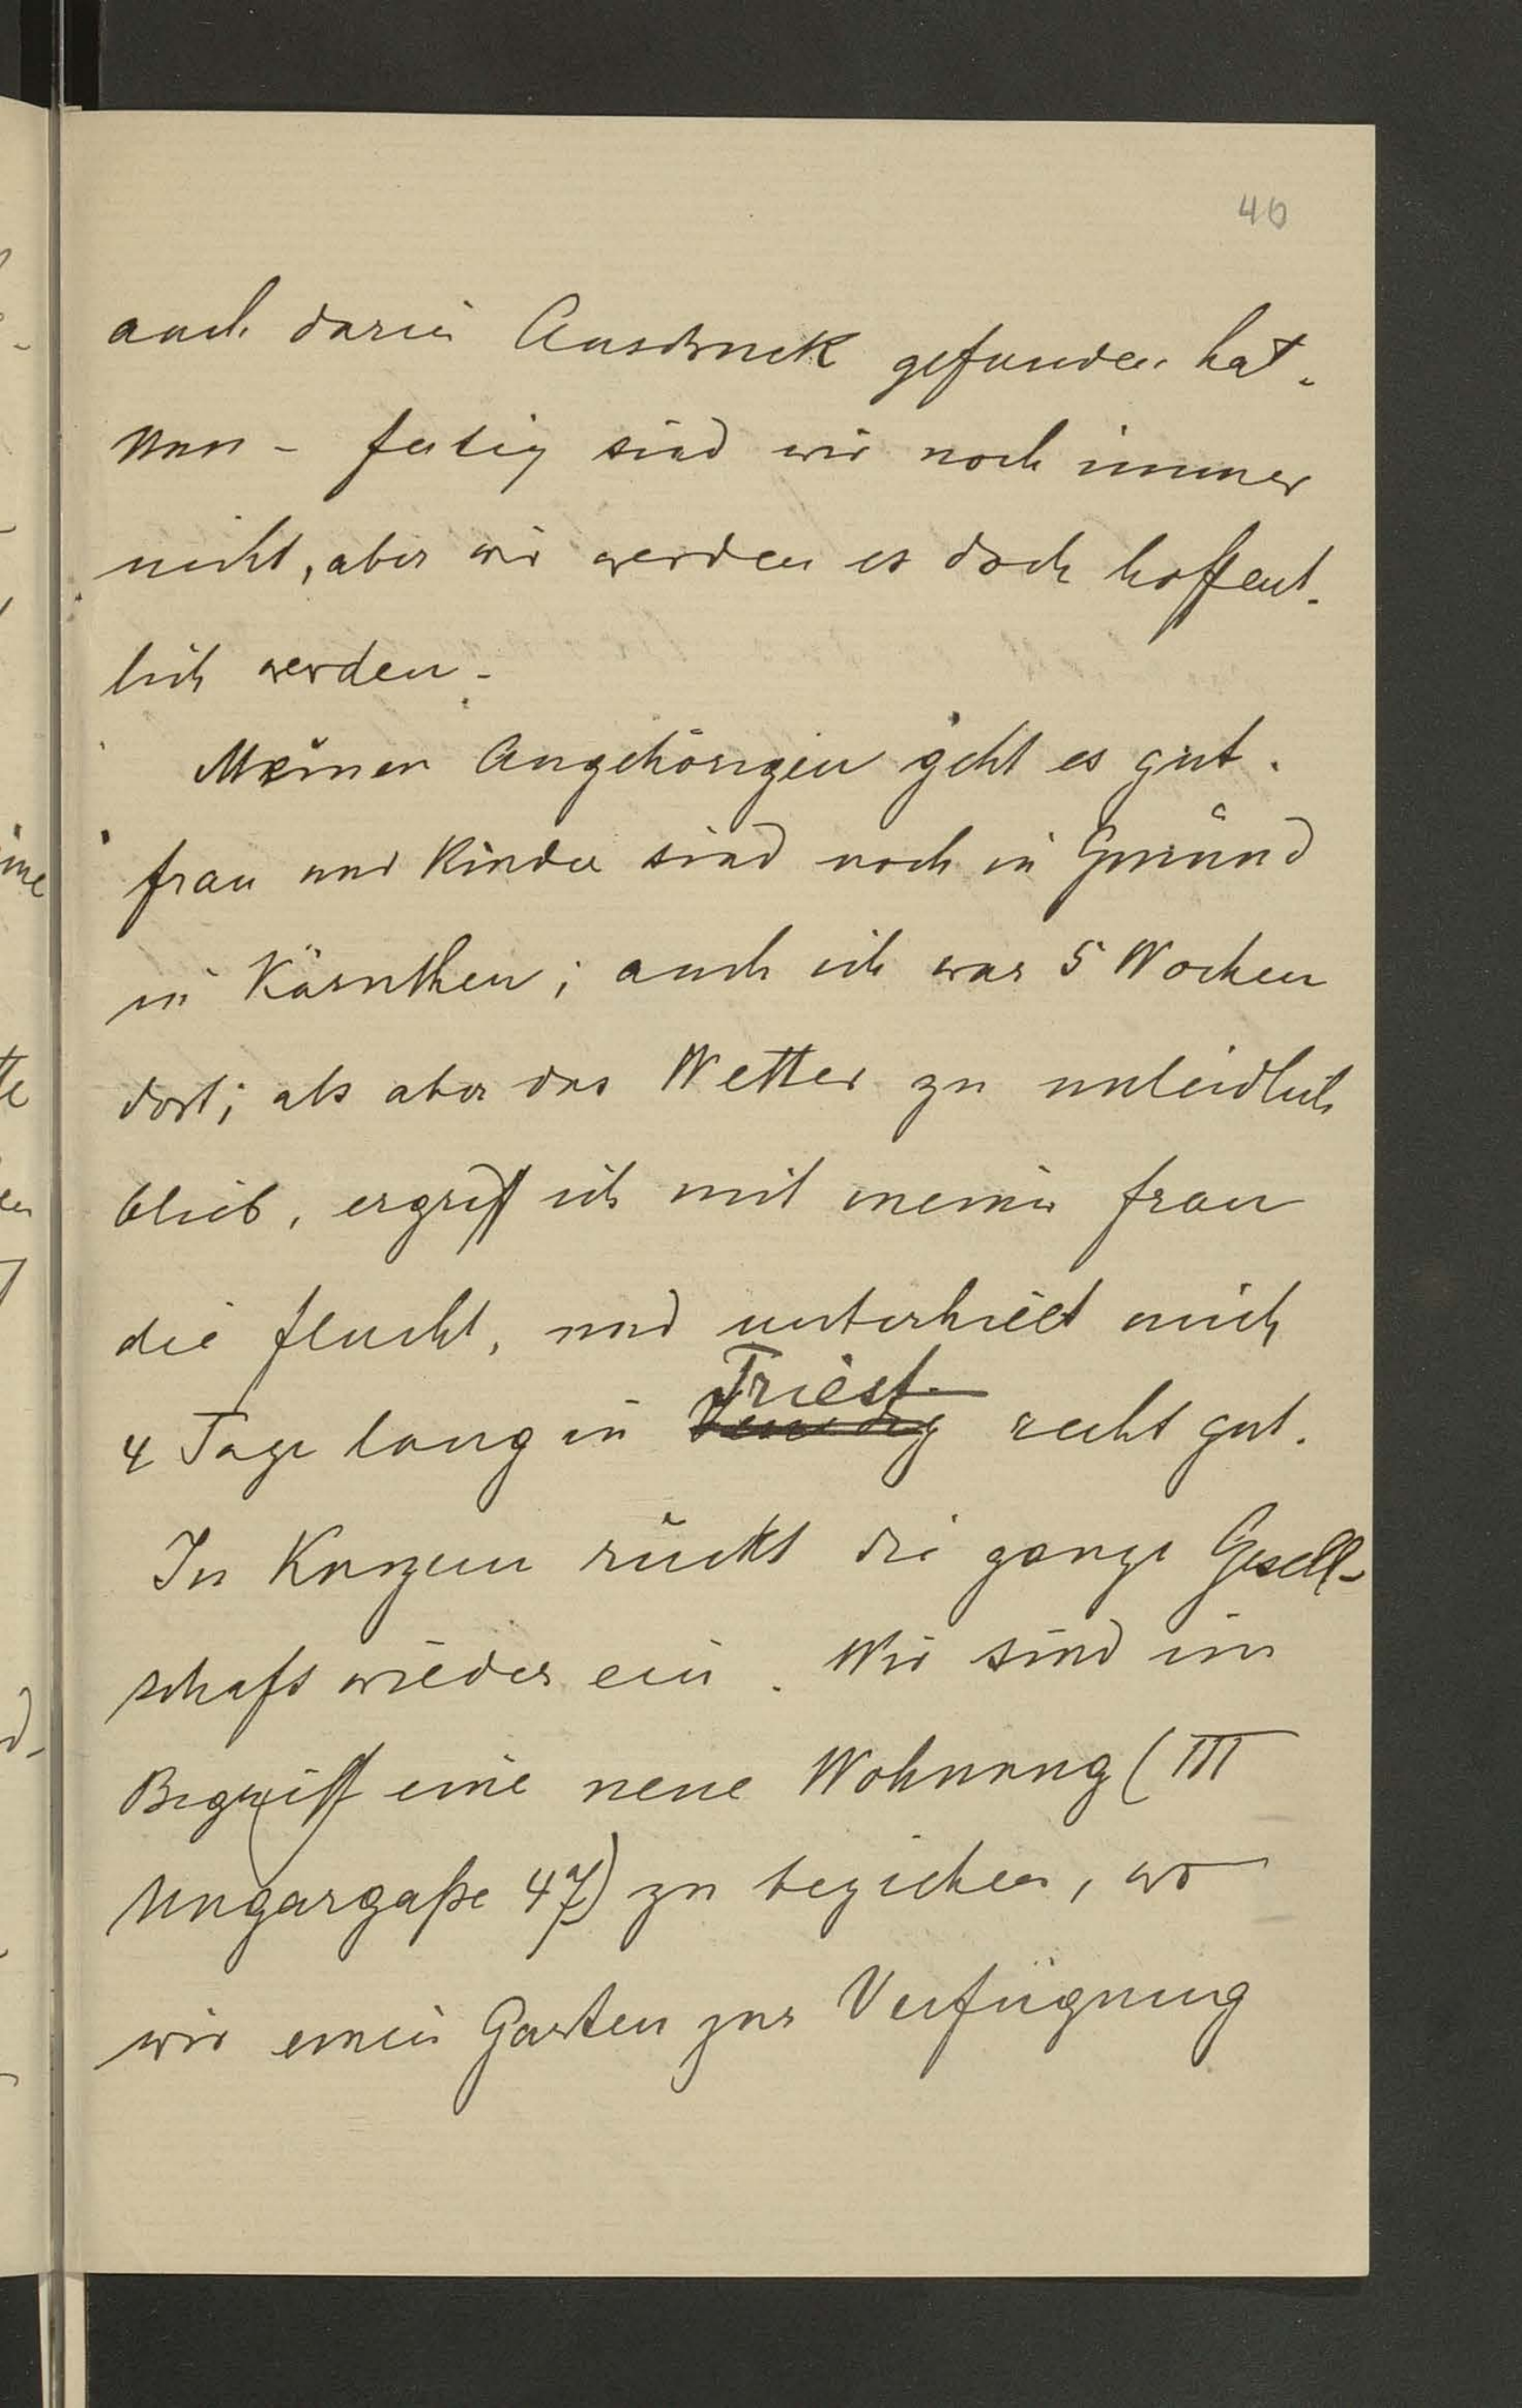 40
auch darin Ausdruck gefunden hat.
Nun – fertig sind wir noch immer
nicht, aber wir werden es doch hoffent-
lich werden. –
Meinen Angehörigen geht es gut.
Frau und Kinder sind noch in Gmünd
in Kärnthen; auch ich war 5 Wochen
dort; als aber das Wetter zu unleidlich
blieb, ergriff ich mit meiner Frau
die Flucht, und unterhielt mich
Triest
4 Tage lang in Venedig recht gut.
In Kurzem rückt die ganze Gesell-
schaft wieder ein. Wir sind im
Begriff eine neue Wohnung (III
Ungargaße 47) zu beziehen, wo
wir einen Garten zur Verfügung